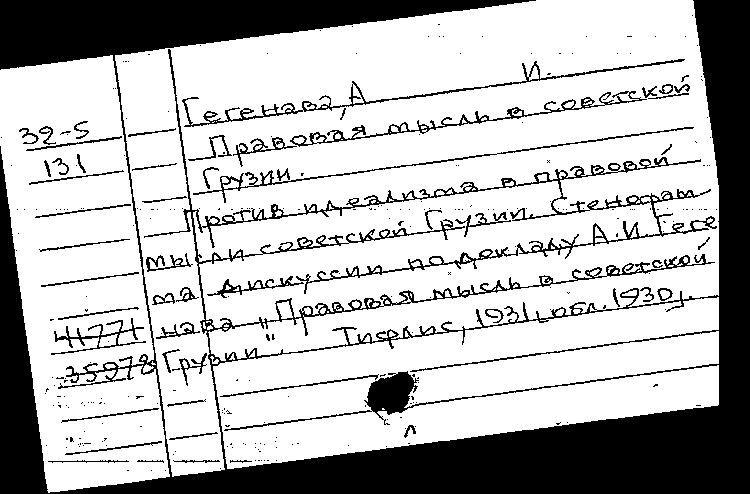 Гегенава, А И.
32-5
Правовая мысль в советской
131
Грузии.
Против идеализма в правовой
мысли советской Грузии. Стенограм
ма дискуссии по докладу А.И. Геге
41771
нава „Правовая мысль в советской
35978
Грузии". Тифлис, 1931, обл. 1930,.